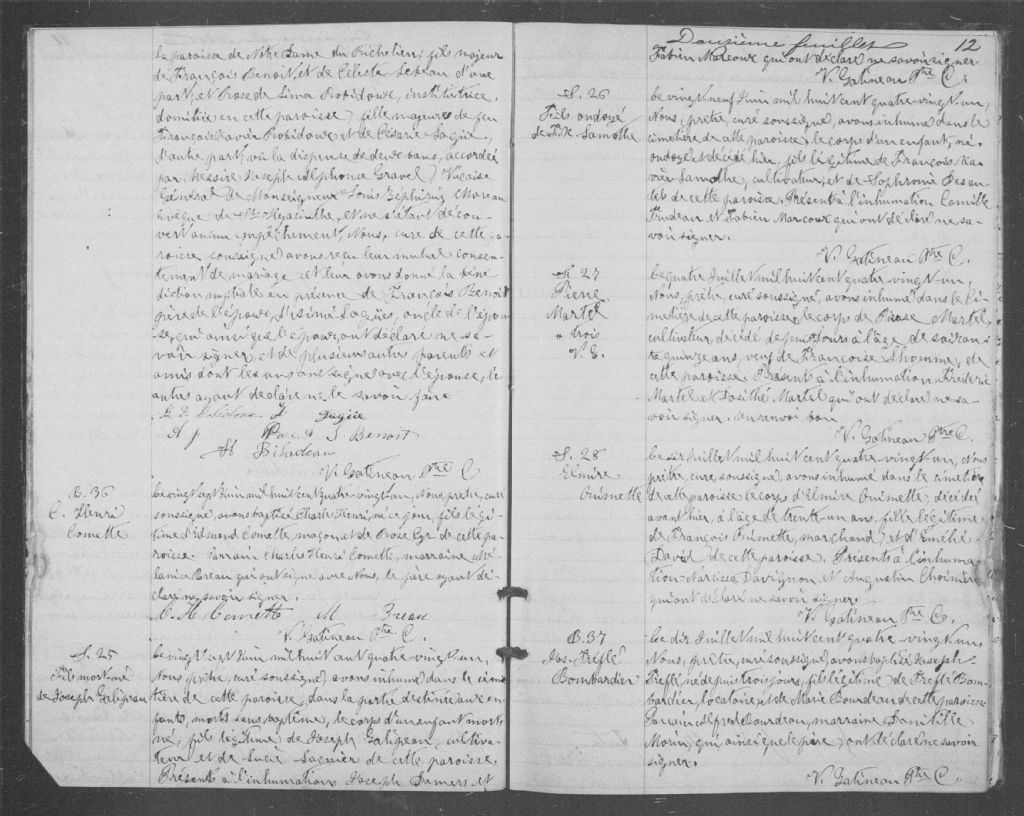 la paroisse de Notre Dame du Richelieu; fils majeur
de François Benoit, et de Céleste d'une
part, et Rose de Lima Robidoux, institutrice,
domiciliée en cette paroisse, fille majeure de feu
François Xavier Robidoux et de Césarie Lagüe,
d'autre part; vû la dispense de deux bans, accordée
par Messire Joseph Alphonse Gravel, Vicaire
Général de Monseigneur Louis Zéphirin Moreau
évêque de St. Hyacinthe, et ne s'étant décou-
vert aucun empêchement, Nous, curé de cette pa-
roisse, soussigné avons reçu leur mutuel consen-
tement de mariage et leur avons donné la béné-
diction nuptiale en présence de François Benoit
père de l'époux, d' Lagüe, oncle de l'épou-
se, qui ainsi que l'époux, ont déclaré ne sa-
voir signer, et de plusieurs autres parents et
amis dont les uns ont signé avec l'épouse, les
autres ayant déclaré ne le savoir faire
R. D. Robidoux J Lagüe
A J J Benoit
V. Gatineau Ptre C.
B. 36
C. Henri
Comette
Le vingt sept Juin mil huit cent quatre-vingt-un, Nous, prêtre, curé
soussigné, avons baptisé Charles Henri, né ce jour, fils légi-
time d'Edmond Comette, maçon, et de Rose Cyr de cette pa-
roisse. Parrain Charles Henri Comette, marraine Mé-
lanise Breau qui ont signé avec Nous, le père ayant dé-
claré ne savoir signer.
C. H. Comette M Breau
V. Gatineau Ptre C.
S. 25
Fils mort né
de Joseph Galipeau
Le vingt sept Juin mil huit cent quatre vingt un,
Nous prêtre, curé soussigné, avons inhumé dans le cime-
tière de cette paroisse, dans la partie destinée aux en-
fants, morts sans baptême, le corps d'un enfant mort
né, fils légitime de Joseph Galipeau, cultiva-
teur et de Lucie de cette paroisse.
Présents à l'inhumation Joseph Demers et
Douzième feuillet 12
Fabien Marcoux qui ont déclaré ne savoir signer
V. Gatineau Ptre C.
S. 26
Fils ondoyé
de F. X. Lamothe
Le vingt neuf Juin mil huit cent quatre-vingt un,
Nous, prêtre, curé soussigné, avons inhumé dans le
cimetière de cette paroisse, le corps d'un enfant, né,
ondoyé et décédé hier, fils légitime de François Xa-
vier Lamothe, cultivateur, et de Sophronie Desau-
tels de cette paroisse. Présents à l'inhumation Camille
Trudeau et Fabien Marcoux qui ont déclaré ne sa-
voir signer.
V. Gatineau Ptre C.
S. 27
Pierre
Martel
* trois
V. G.
Le quatre Juillet mil huit cent quatre-vingt-un,
Nous, prêtre, curé soussigné, avons inhumé dans le ci-
metière de cette paroisse, le corps de Pierre Martel,
cultivateur, décédé depuis * jours à l'âge de soixan-
te quinze ans, veuf de Françoise Lhomme, de
cette paroisse. Présents à l'inhumation Frédéric
Martel et Dosithé Martel qui ont déclaré ne sa-
voir signer. un renvoi bon
V. Gatineau Ptre C.
S. 28
Elmire
Ouimette
Le six Juillet mil huit cent quatre-vingt-un, Nous
prêtre, curé, soussigné, avons inhumé dans le cimetière
de cette paroisse le corps d'Elmire Ouimette décédée
avant hier, à l'âge de trente-un ans, fille légitime
de François Ouimette, marchand, et d'Emélie
David, de cette paroisse. Présents à l'inhuma-
tion Narcisse Davignon et Augustin Choinière
qui ont déclaré ne savoir signer.
V. Gatineau Ptre C.
B. 37
Jos. Trefflé
Bombardier
Le dix Juillet mil huit cent quatre-vingt-un,
Nous, prêtre, curé soussigné, avons baptisé Joseph
Trefflé, né depuis trois jours, fils légitime de Trefflé Bom-
bardier, locataire, et de Marie Bourdeau de cette paroisse
Parrain Alfred Bourdeau, marraine Domitille
Morin, qui ainsi que le père, ont déclaré ne savoir
signer.
V. Gatineau Ptre C.